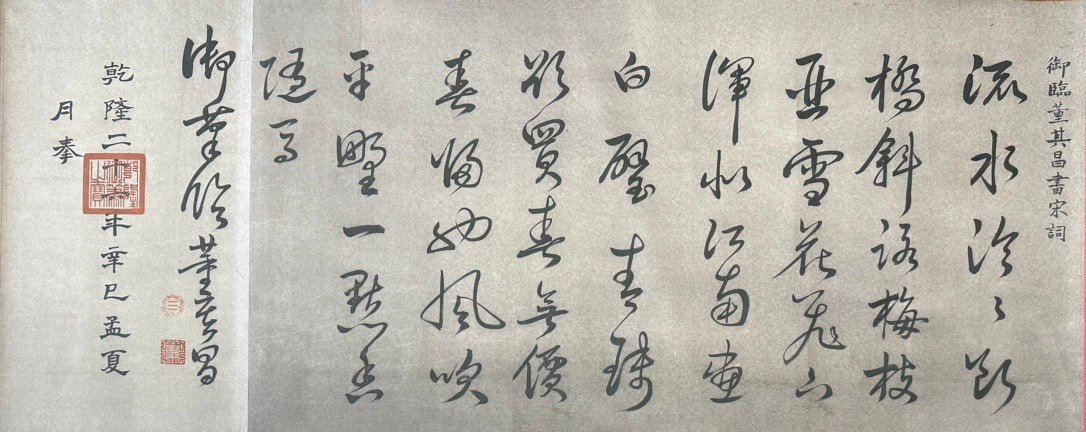 御臨董其昌書宋詞
流水泠々斷
橋斜路梅枝
亞雪花飛下
渾似江南畫
白璧青錢
欲買春無價
春歸也風吹
平野一點香
隨馬
御筆臨董其昌
乾隆二十六年辛巳孟夏
月奉